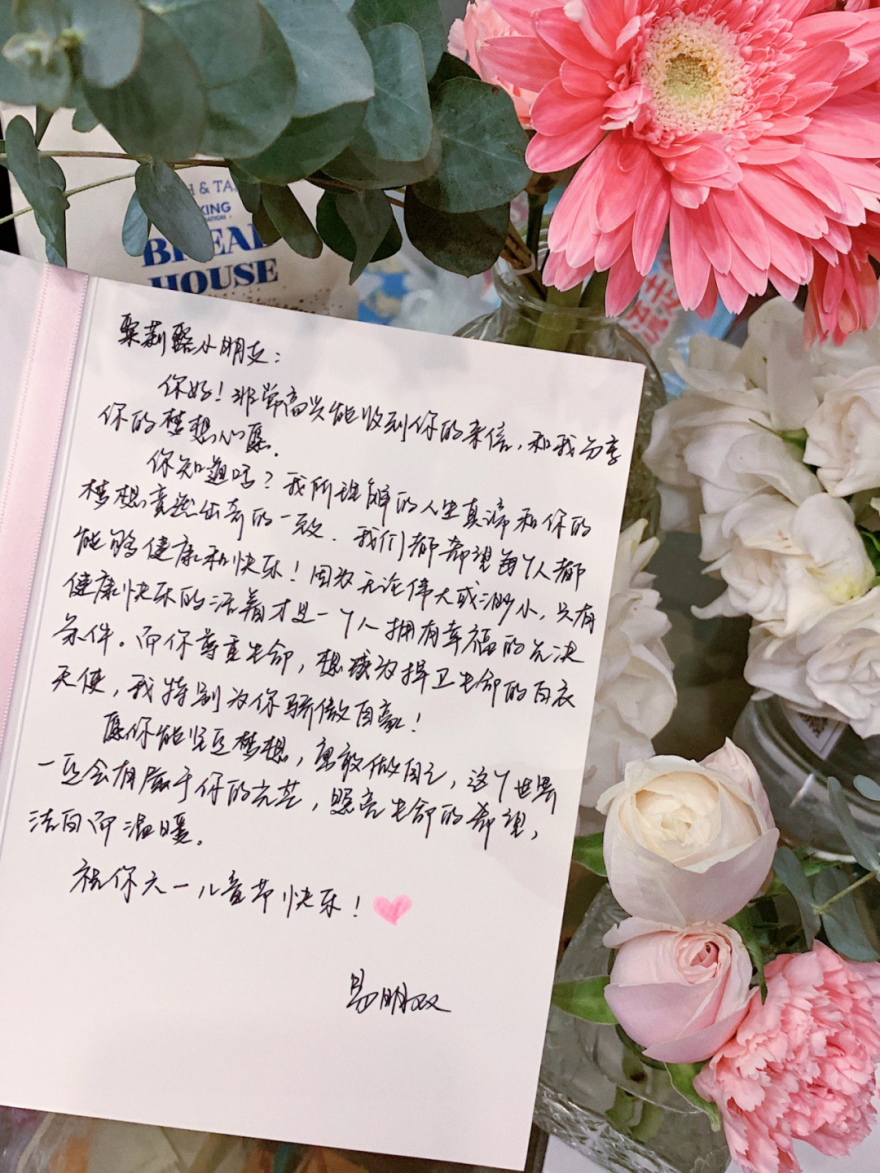 H & TA
KING
BREAD
HOUSE
小朋友：
你好！非常高兴能收到你的来信，和我分享
你的梦想心愿．
你知道吗？我所理解的人生真谛和你的
梦想竟然出奇的一致．我们都希望每个人都
能够健康和快乐！因为无论伟大或渺小，只有
健康快乐的活着才是一个人拥有幸福的先决
条件。而你尊重生命，想成为捍卫生命的白衣
天使，我特别为你骄傲自豪！
愿你能坚定梦想，勇敢做自己，这个世界
一定会有属于你的光芒，照亮生命的希望，
洁白而温暖。
祝你六一儿童节快乐！
易明双